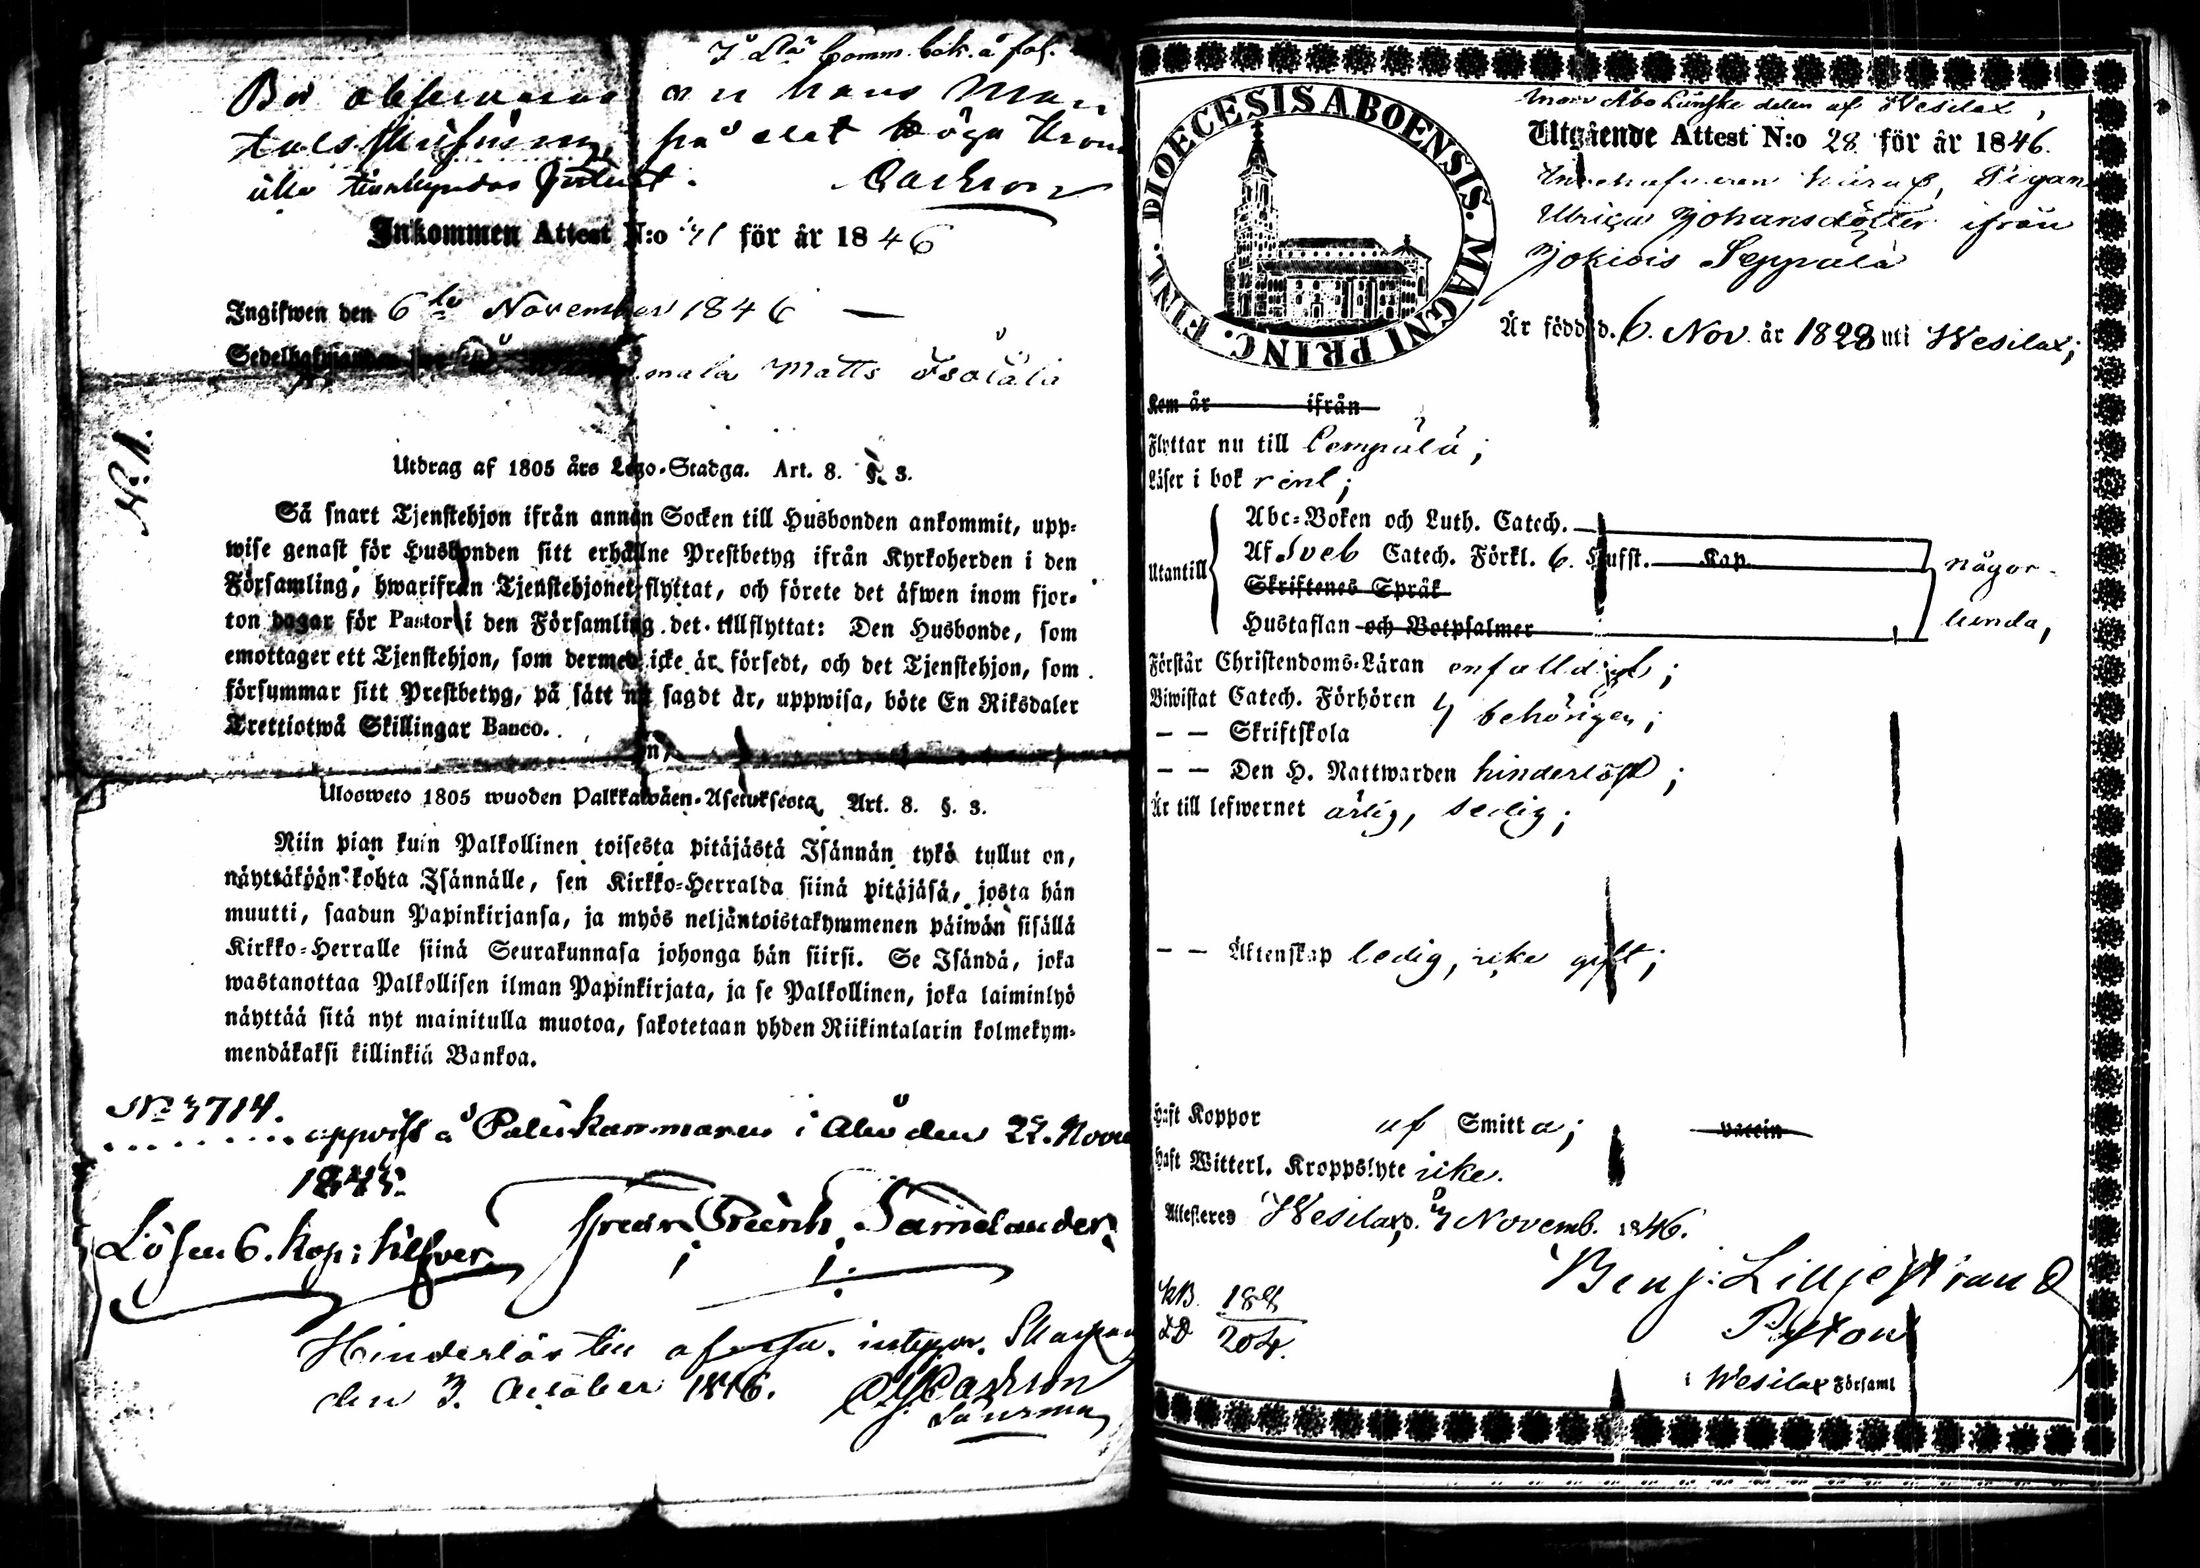 Comm. bok. å fol.
Bör observeras
det höga
Inkommen Attest N:o 71 för år 1846
Ingifwen den 6te November 1846 —
Matts Isotalo
N:1.
Utdrag af 1805 års Lego-Stadga. Art. 8. §. 3.
Så snart Tjenstehjon ifrån annan Socken till Husbonden ankommit, upp-
wise genast för Husbonden sitt erhållne Prestbetyg ifrån Kyrkoherden i den
Församling, hwarifrån Tjenstehjonet flyttat, och förete det äfwen inom fjor-
ton dagar för Pastor i den Församling det tillflyttat: Den Husbonde, som
emottager ett Tjenstehjon, som dermed icke är försedt, och det Tjenstehjon, som
försummar sitt Prestbetyg, på sätt nu sagdt är, uppwisa, böte En Riksdaler
Trettiotwå Skillingar Banco.
Ulosweto 1805 wuoden Palkkawäen-Asetuksesta, Art. 8. §. 3.
Niin pian kuin Palkollinen toisesta pitäjästä Isännän tykö tullut on,
näyttäköön kohta Isännälle, sen Kirkko-Herralda siinä pitäjäsä, josta hän
muutti, saadun Papinkirjansa, ja myös neljäntoistakymmenen päiwän sisällä
Kirkko-Herralle siinä Seurakunnasa johonga hän siirsi. Se Isändä, joka
wastanottaa Palkollisen ilman Papinkirjata, ja se Palkollinen, joka laiminlyö
näyttää sitä nyt mainitulla muotoa, sakotetaan yhden Riikintalarin kolmekym-
mendäkaksi killinkiä Bankoa.
No 3714.
uppvist å Poliskammaren i Åbo den 22. Nov
1845.
Lösen 6. kop: silfver. Fredr. Samelander.
Hinderlös till
den 3. October 1846.
DIOECESIS ABOENSIS. MAGNI PRINC. FINL.
inom Åbo Länske delen af Wesilax,
Utgående Attest N:o 28 för år 1846.
Innehafveren häraf, Pigan
Ulrica Johansdotter ifrån
Jokiois Seppälä
Är född d. 6. Nov. år 1828 uti Wesilax;
Kom år ifrån
Flyttar nu till Lempälä;
Läser i bok rent;
Utantill
Abc-Boken och Luth. Catech.
Af Sveb Catech. Förkl. 6. Hufst. Kap.
Skriftenes Språk
Hustaflan och Botpsalmer
någor-
lunda,
Förstår Christendoms-Läran enfalldigt;
Biwistat Catech. Förhören
— — Skriftskola
behörigen;
— — Den H. Nattwarden hinderlöst;
Är till lefwernet ärlig, sedig;
— — Äktenskap ledig, icke gift;
Haft Koppor af Smitta; vaccin
Haft Witterl. Kroppslyte icke.
Attesteras Wesilax, d. 3 Novemb. 1846.
Benj: Liljestrand
Pastor
i Wesilax Församl
KB. 188
LD 204.